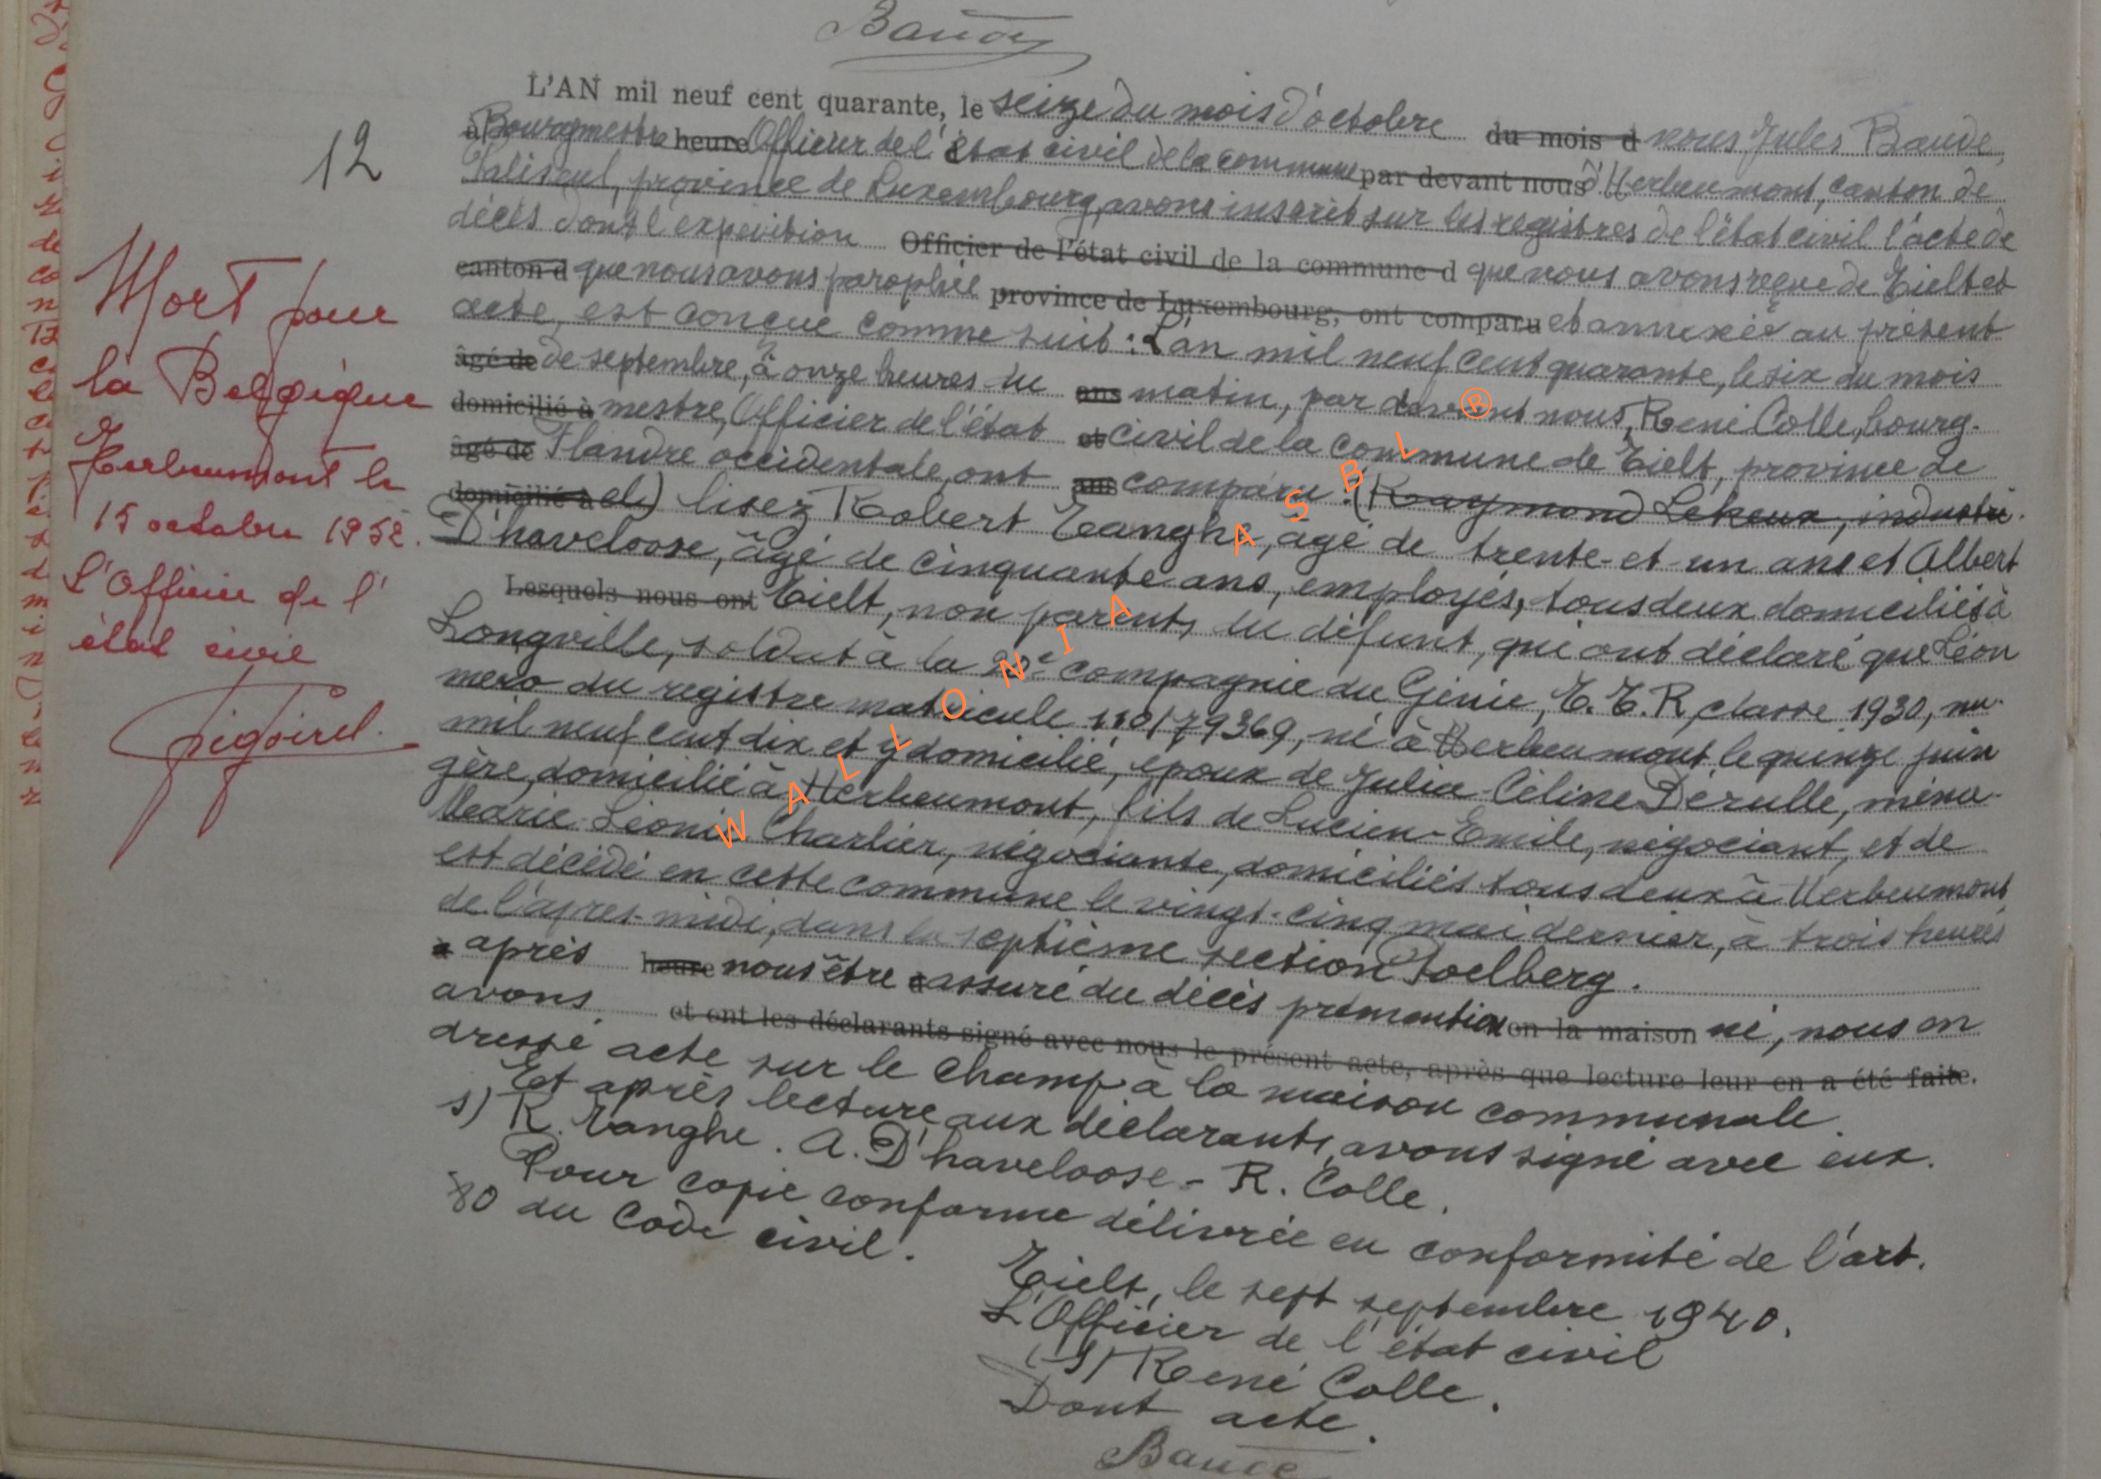 Baude
L'AN mil neuf cent quarante, le seize du mois d'octobre du mois d nous Jules Baude,
à Bourgmestre heure Officier de l'état civil de la commune par devant nous d'Herbeumont, canton de
Paliseul, province de Luxembourg, avons inscrit sur les registres de l'état civil l'acte de
décès dont l'expédition Officier de l'état civil de la commune d que nous avons reçue de Tielt et
canton d que nous avons paraphée province de Luxembourg, ont comparu et annexée au présent
acte, est conçue comme suit : L'an mil neuf cent quarante, le six du mois
âgé de de septembre, à onze heures du ans matin, par devant nous, René Colle, bourg-
domicilié à mestre, Officier de l'état et civil de la commune de Tielt, province de
âgé de Flandre occidentale, ont ans comparu : (Raymond Lekeux, industri-
domicilié à el) lisez Robert Tanghe, âgé de trente-et-un ans et Albert
D'haveloose, âgé de cinquante ans, employés, tous deux domiciliés à
Lesquels nous ont Tielt, non parents du défunt, qui ont déclaré que Léon
Longville, soldat à la 20e compagnie du Génie, T.T.R, classe 1930, nu-
mero du registre matricule 110/79369, né à Herbeumont, le quinze juin
mil neuf cent dix et y domicilié, époux de Julia Céline Derulle, ména-
gère, domicilié à Herbeumont, fils de Lucien-Emile, négociant, et de
Marie-Léonie Charlier, négociante, domiciliés tous deux à Herbeumont
est décédé en cette commune le vingt-cinq mai dernier, à trois heures
de l'après-midi, dans la septième section Poelberg.
a après heure nous être assuré du décès prémentio en la maison né, nous en
avons et ont les déclarants signé avec nous le présent acte, après que lecture leur en a été faite.
dressé acte sur le champ à la maison communale.
Et après lecture aux déclarants, avons signé avec eux.
s) R. Tanghe. A. D'haveloose - R. Colle.
Pour copie conforme délivrée en conformité de l'art.
80 du Code civil.
Tielt, le sept septembre 1940.
L'Officier de l'état civil
(s) René Colle.
Dont acte.
Baude
12
Mort pour
la Belgique
Herbeumont le
15 octobre 1952.
L'Officier de l'
état civil
WALLONIA ASBL ®